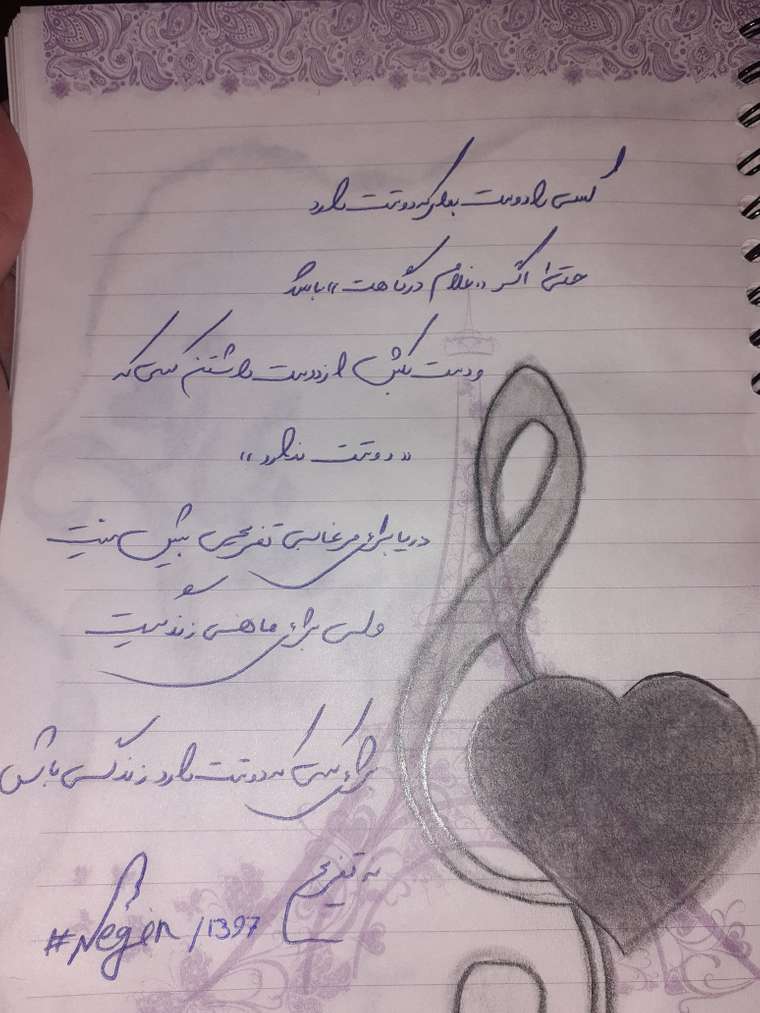 کسی را دوست بدار که دوستت دارد
حتی اگر «غلام درگاهت» باشد
و دست بکش از دوست داشتن کسی که
«دوستت ندارد»
دریا برای مرغابی تفریحی بیش نیست
ولی برای ماهی زندگیست
برای کسی که دوستت دارد زندگی باش
نه تفریح
#Negin/1397